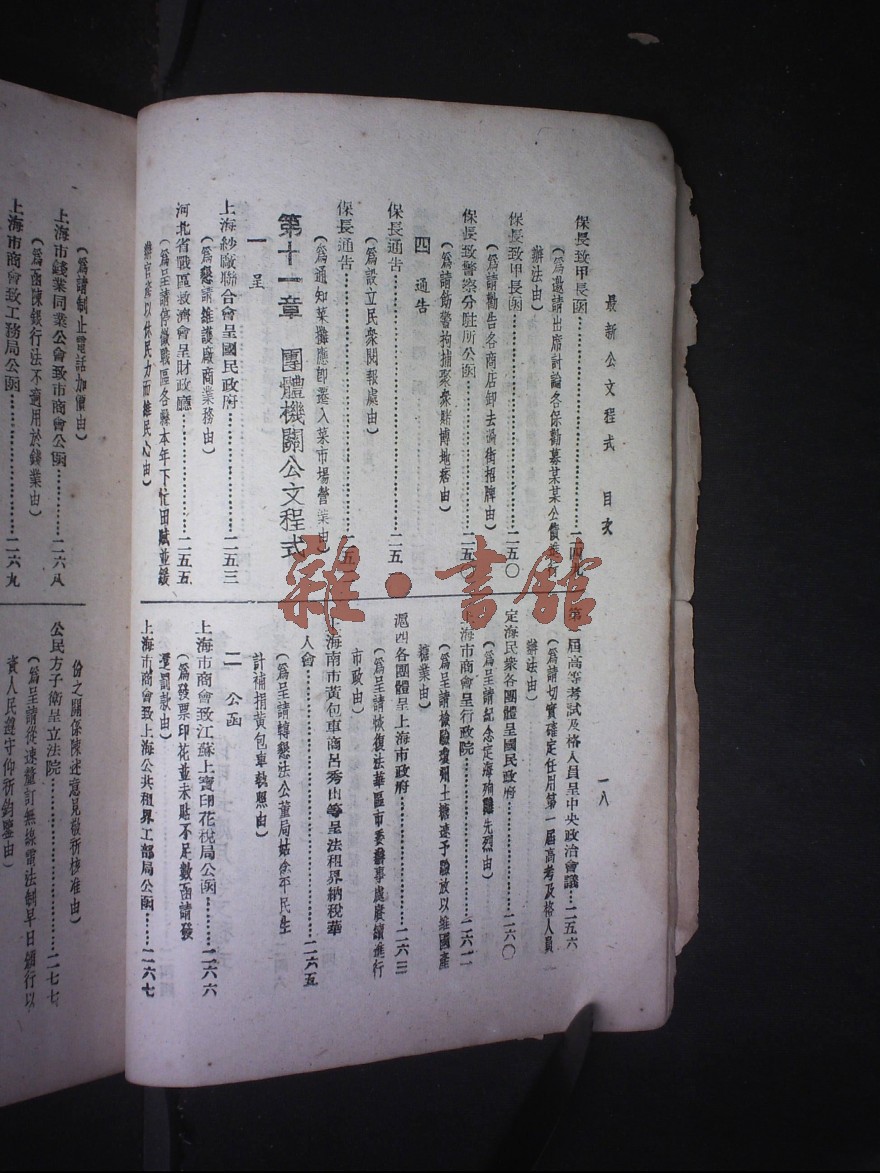 最新公文程式 目次
一八
保長致甲長函………二四
(爲邀請出席討論各保勸募某某公債
辦法由)
保長致甲長函………二五〇
(爲請勸告各商店卸去過街招牌由)
保長致警察分駐所公函………二五
(爲請飭警拘捕聚衆賭博地痞由)
四 通告
保長通告………二五
(爲設立民衆閱報處由)
保長通告………二五
(爲通知菜攤應卽遷入菜市場營業由)
第十一章 團體機關公文程式
一 呈
上海紗廠聯合會呈國民政府………二五三
(爲懇請維護廠商業務由)
河北省戰區救濟會呈財政廳………二五五
(爲呈請停徵戰區各縣本年下忙田賦並緩
辦官產以休民力而維民心由)
第 屆高等考試及格人員呈中央政治會議……二五六
(爲請切實確定任用第一屆高考及格人員
辦法由)
定海民衆各團體呈國民政府………二六〇
(爲呈請紀念定海殉難先烈由)
上海市商會呈行政院………二六二
(爲呈請檢驗瓊州土糖速予驗放以維國產
糖業由)
滬西各團體呈上海市政府………二六三
(爲呈請恢復法華區市委辦事處賡續進行
市政由)
上海南市黃包車商呂秀山等呈法租界納稅華
人會………二六五
(爲呈請轉懇法公董局姑念平民生
計補捐黃包車執照由)
二 公函
上海市商會致江蘇上寶印花稅局公函……二六六
(爲發票印花並未貼不足數函請發
還罰款由)
上海市商會致上海公共租界工部局公函……二六七
(爲請制止電話加價由)
上海市錢業同業公會致市商會公函………二六八
(爲函陳銀行法不適用於錢業由)
上海市商會致工務局公函………二六九
份之關係陳述意見敬祈核准由)
公民方子衛呈立法院………二七七
(爲呈請從速釐訂無線電法制早日頒行以
資人民遵守仰祈鈞鑒由)
雜·書館